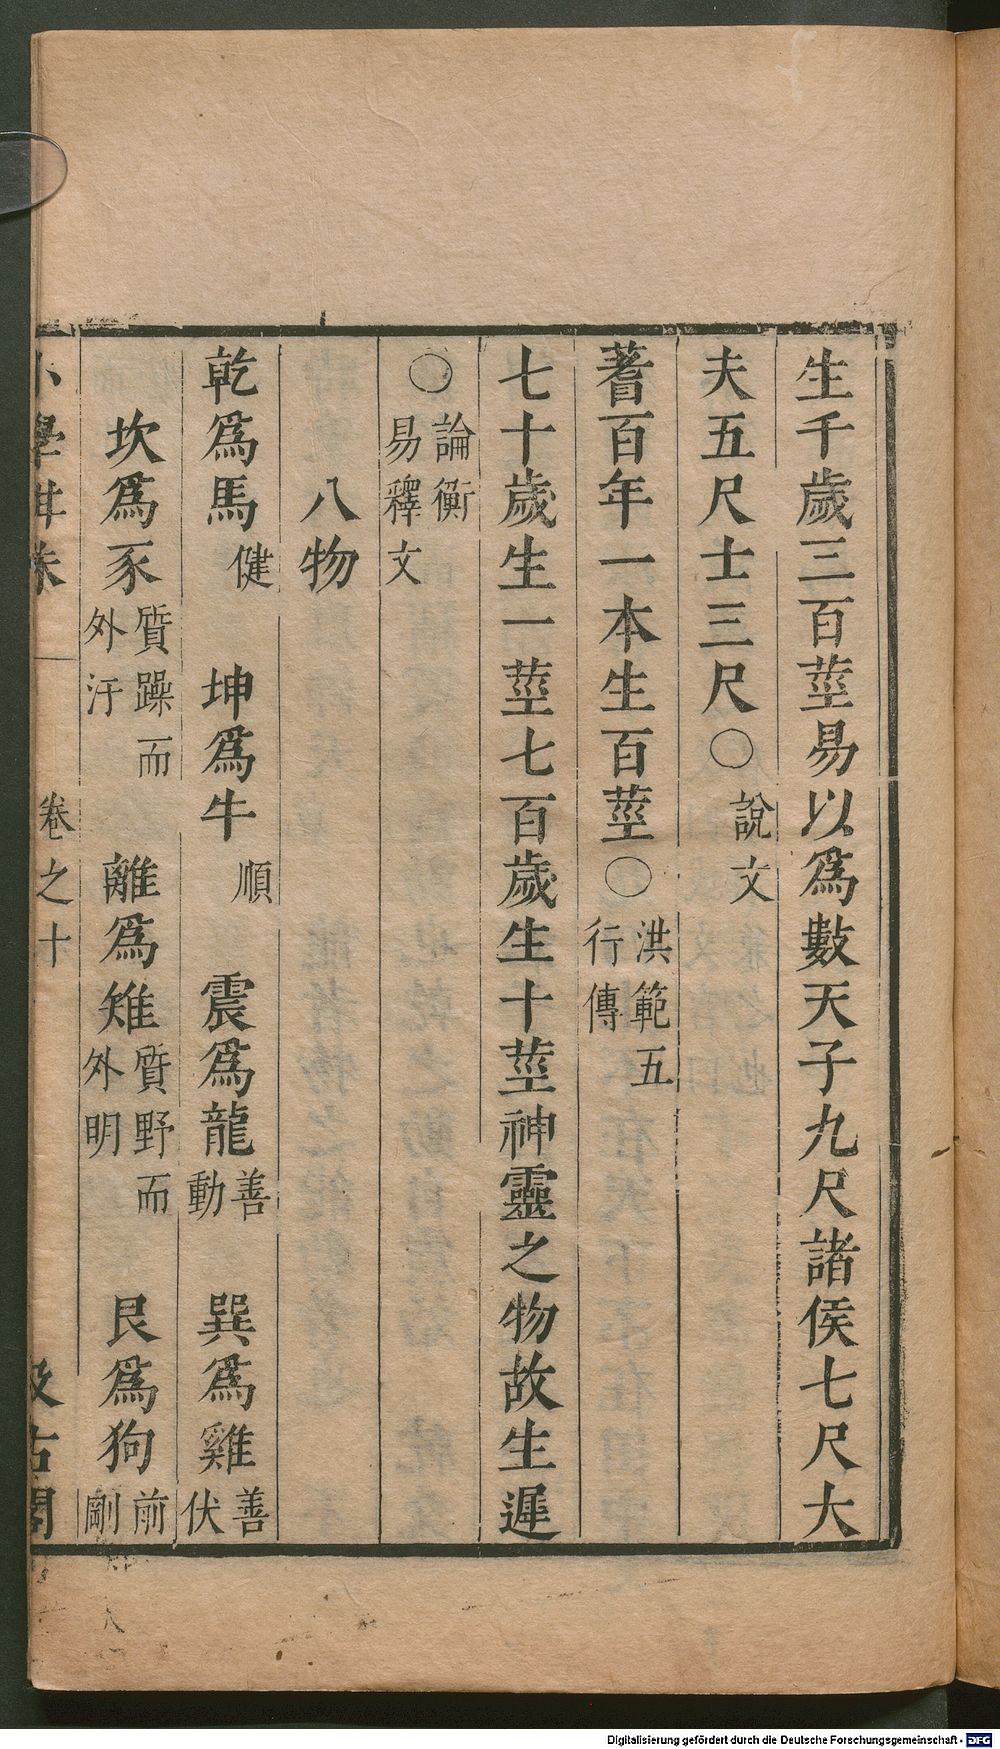 生千歲三百莖易以爲數天子九尺諸侯七尺大
夫五尺士三尺〇說文
蓍百年一本生百莖〇洪範五行傳
七十歲生一莖七百歲生十莖神靈之物故生遲
〇論衡易釋文
八物
乾爲馬健 坤爲牛順 震爲龍善動 巽爲雞善伏
坎爲豕質躁而外汙 離爲雉質野而外明 艮爲狗前剛
小學紺珠 卷之十 汲古閣
Digitalisierung gefördert durch die Deutsche Forschungsgemeinschaft - DFG